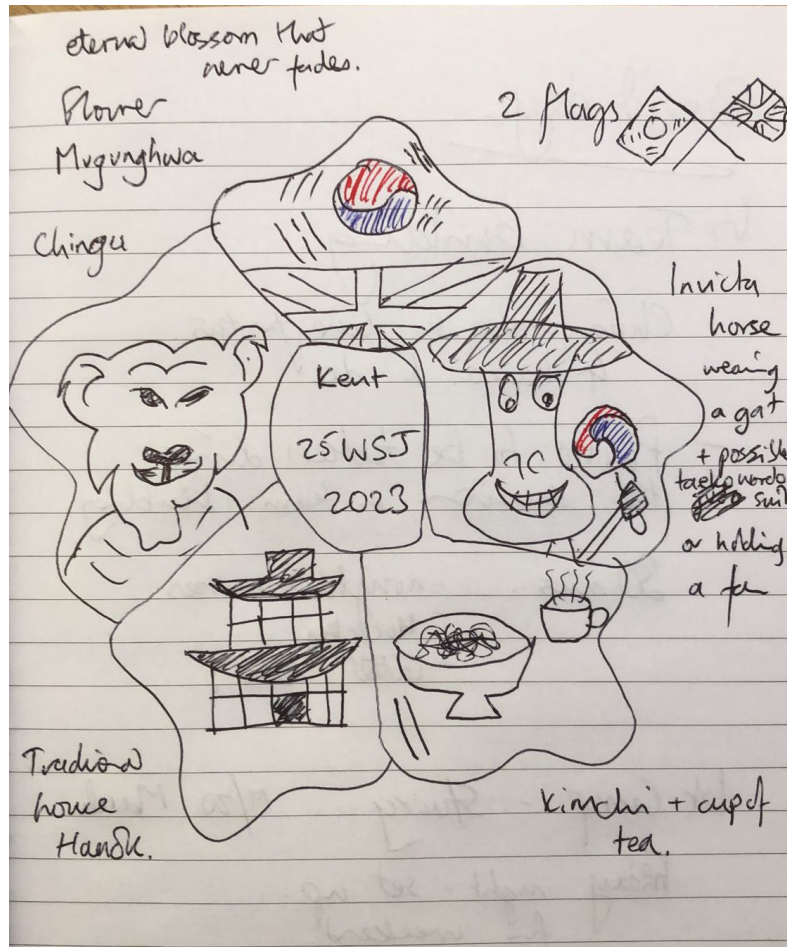 eternal blossom that
never fades.
Flower
Mugunghwa
2 flags
Chingu
Invicta
horse
wearing
a gat
+ possible
taekowondo
suit
or holding
a fan
Kent
25 WSJ
2023
Traditional
house
Hanok.
Kimchi + cup of
tea.